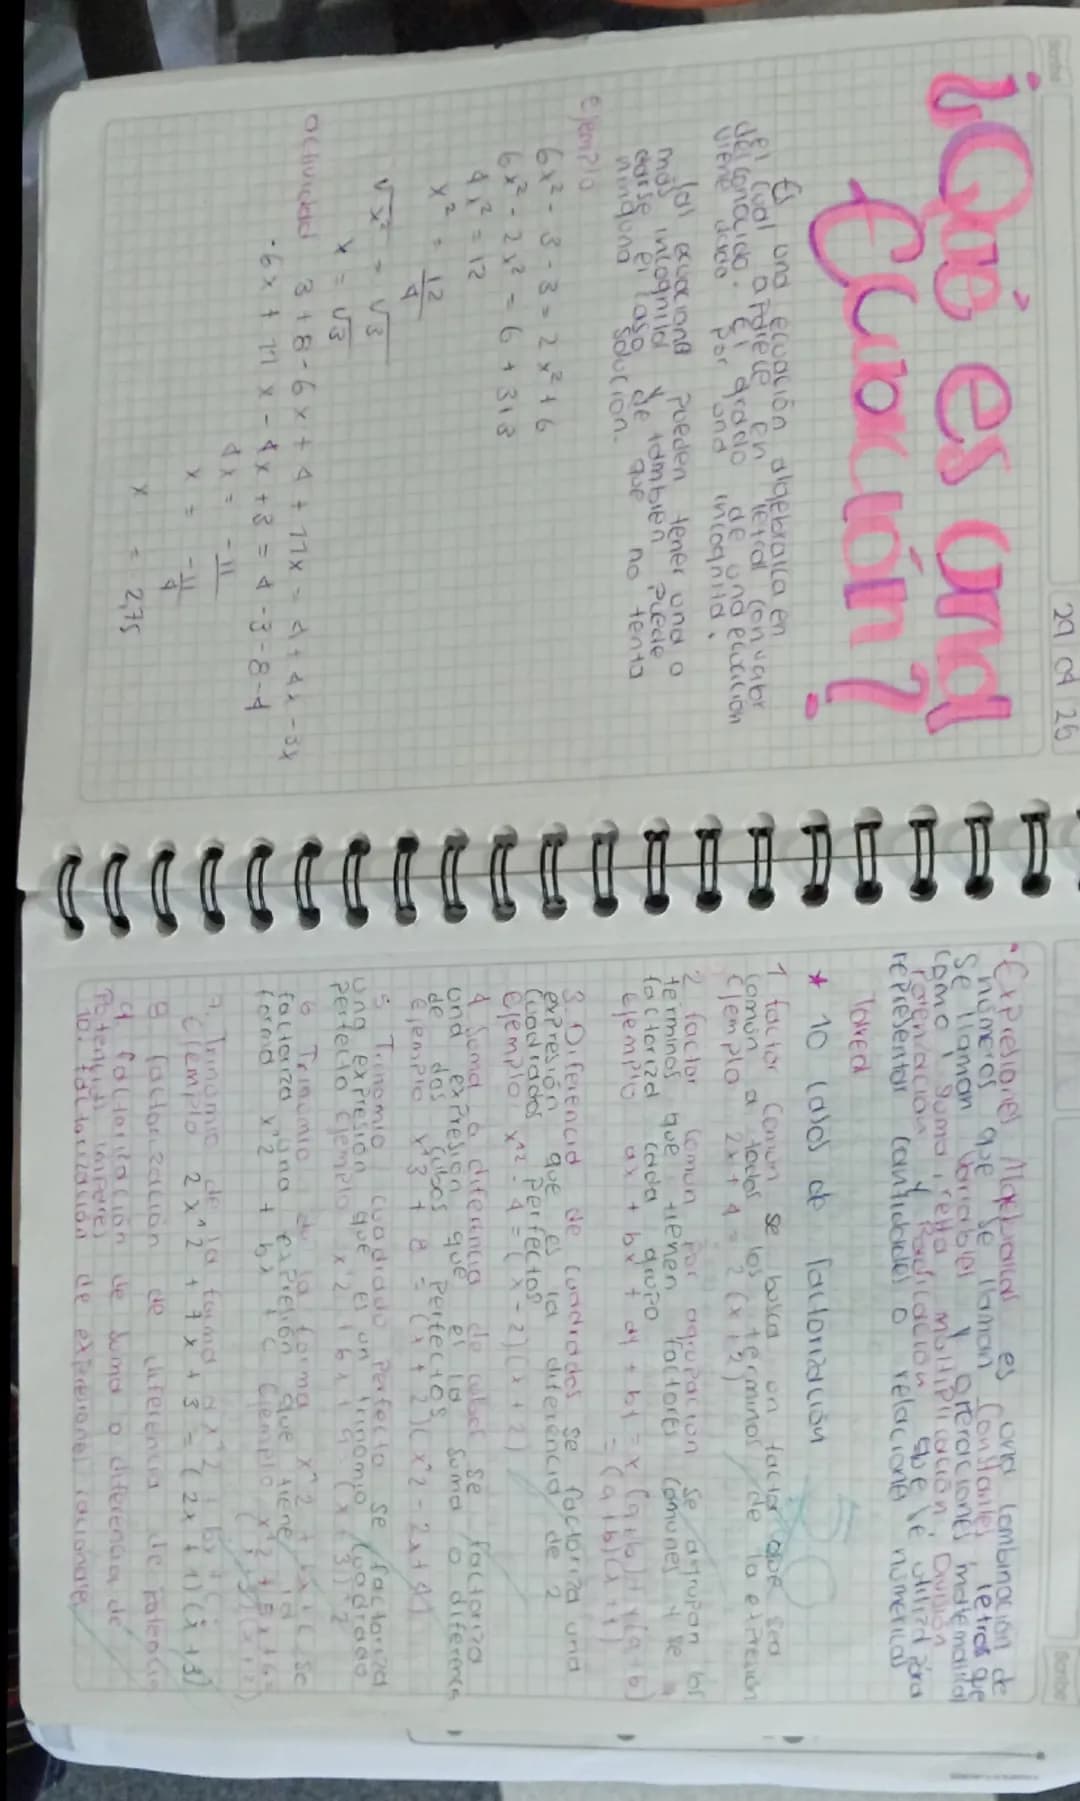 29 04 25
¿Qué es una
Ecuación?
Es una ecuación algebraica en
el cual aparece en letra con valor
desconocido. El grado de una ecuación
viene dado por una incognita.
las ecuaciona pueden tener una o
más incognita y también puede
darse el caso de que no tenta
ninguna solucion.
Ejemplo
6x² - 3 - 3 = 2x² + 6
6x² - 2x² = 6 + 3+3
4x² = 12
x² = 12/4
√x² = √3
x = √3
actividad 3 + 8 - 6x + 4 + 11x = 4 + 4x - 3x
-6x + 11x - 4x + 3 = 4 - 3 - 8 - 4
4x = -11
x = -11/4
x = 2,75
Scribe
• Expresiones Algebraicas es una combinación de
números que se llaman Constantes letras que
se llaman Variables y operaciones matematical
como suma, resta multiplicación, División
Potenciación y Radicación que se utiliza para
representar cantidades o relaciones númericas
Tarea
★ 10 Casos de factorización
1 factor Comun se busca un factor que sea
común a todos los terminos de la expresión
Ejemplo 2x + 4 = 2(x+2)
2 factor comun por agrupacion se agrupan los
terminos que tienen factores comunes y se
factoriza cada grupo
Ejemplo ax + bx + ay + by = x(a+b) + y(a+b)
= (a+b)(x+y)
3. Diferencia de cuadrados se factoriza una
expresión que es la diferencia de 2
cuadrados perfectos
Ejemplo x^2 - 4 = (x - 2)(x + 2)
4 Suma o diferencia de cubos se factoriza
una expresión que es la suma o diferencia
de dos cubos perfectos
Ejemplo x^3 + 8 = (x + 2)(x^2 - 2x + 4)
5 Trinomio cuadrado perfecto se factoriza
una expresión que es un trinomio cuadrado
perfecto Ejemplo x^2 + 6x + 9 = (x + 3)^2
6 Trinomio de la forma x^2 + bx + c se
factoriza una expresión que tiene la
forma x^2 + bx + c Ejemplo x^2 + 5x + 6
7. Trinomio de la forma ax^2 + bx + c
Ejemplo 2x^2 + 7x + 3 = (2x + 1)(x + 3)
8 factorización de diferencia de potencia
9 factorización de suma o diferencia de
Potencias impares
10. factorización de expresiones racionales
Scribe